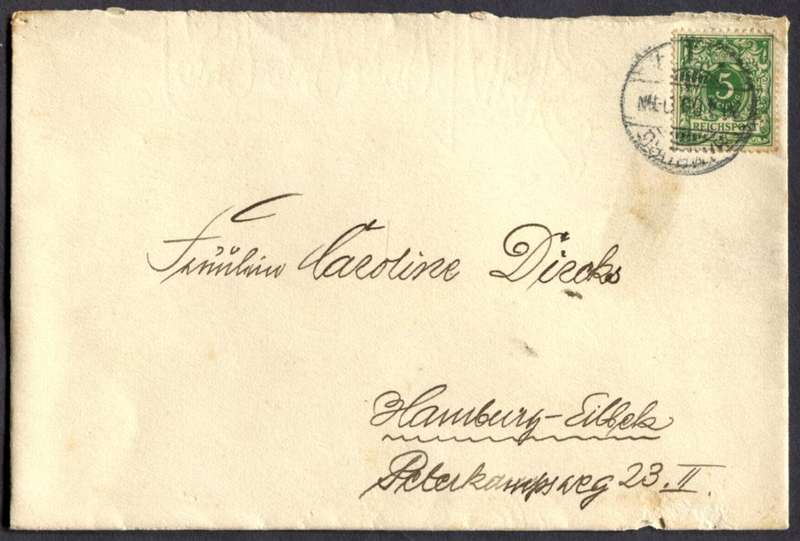 5
REICHSPOST
Fräulein Caroline Dircks
Hamburg-Eilbek
Peterkampsweg 23.II.